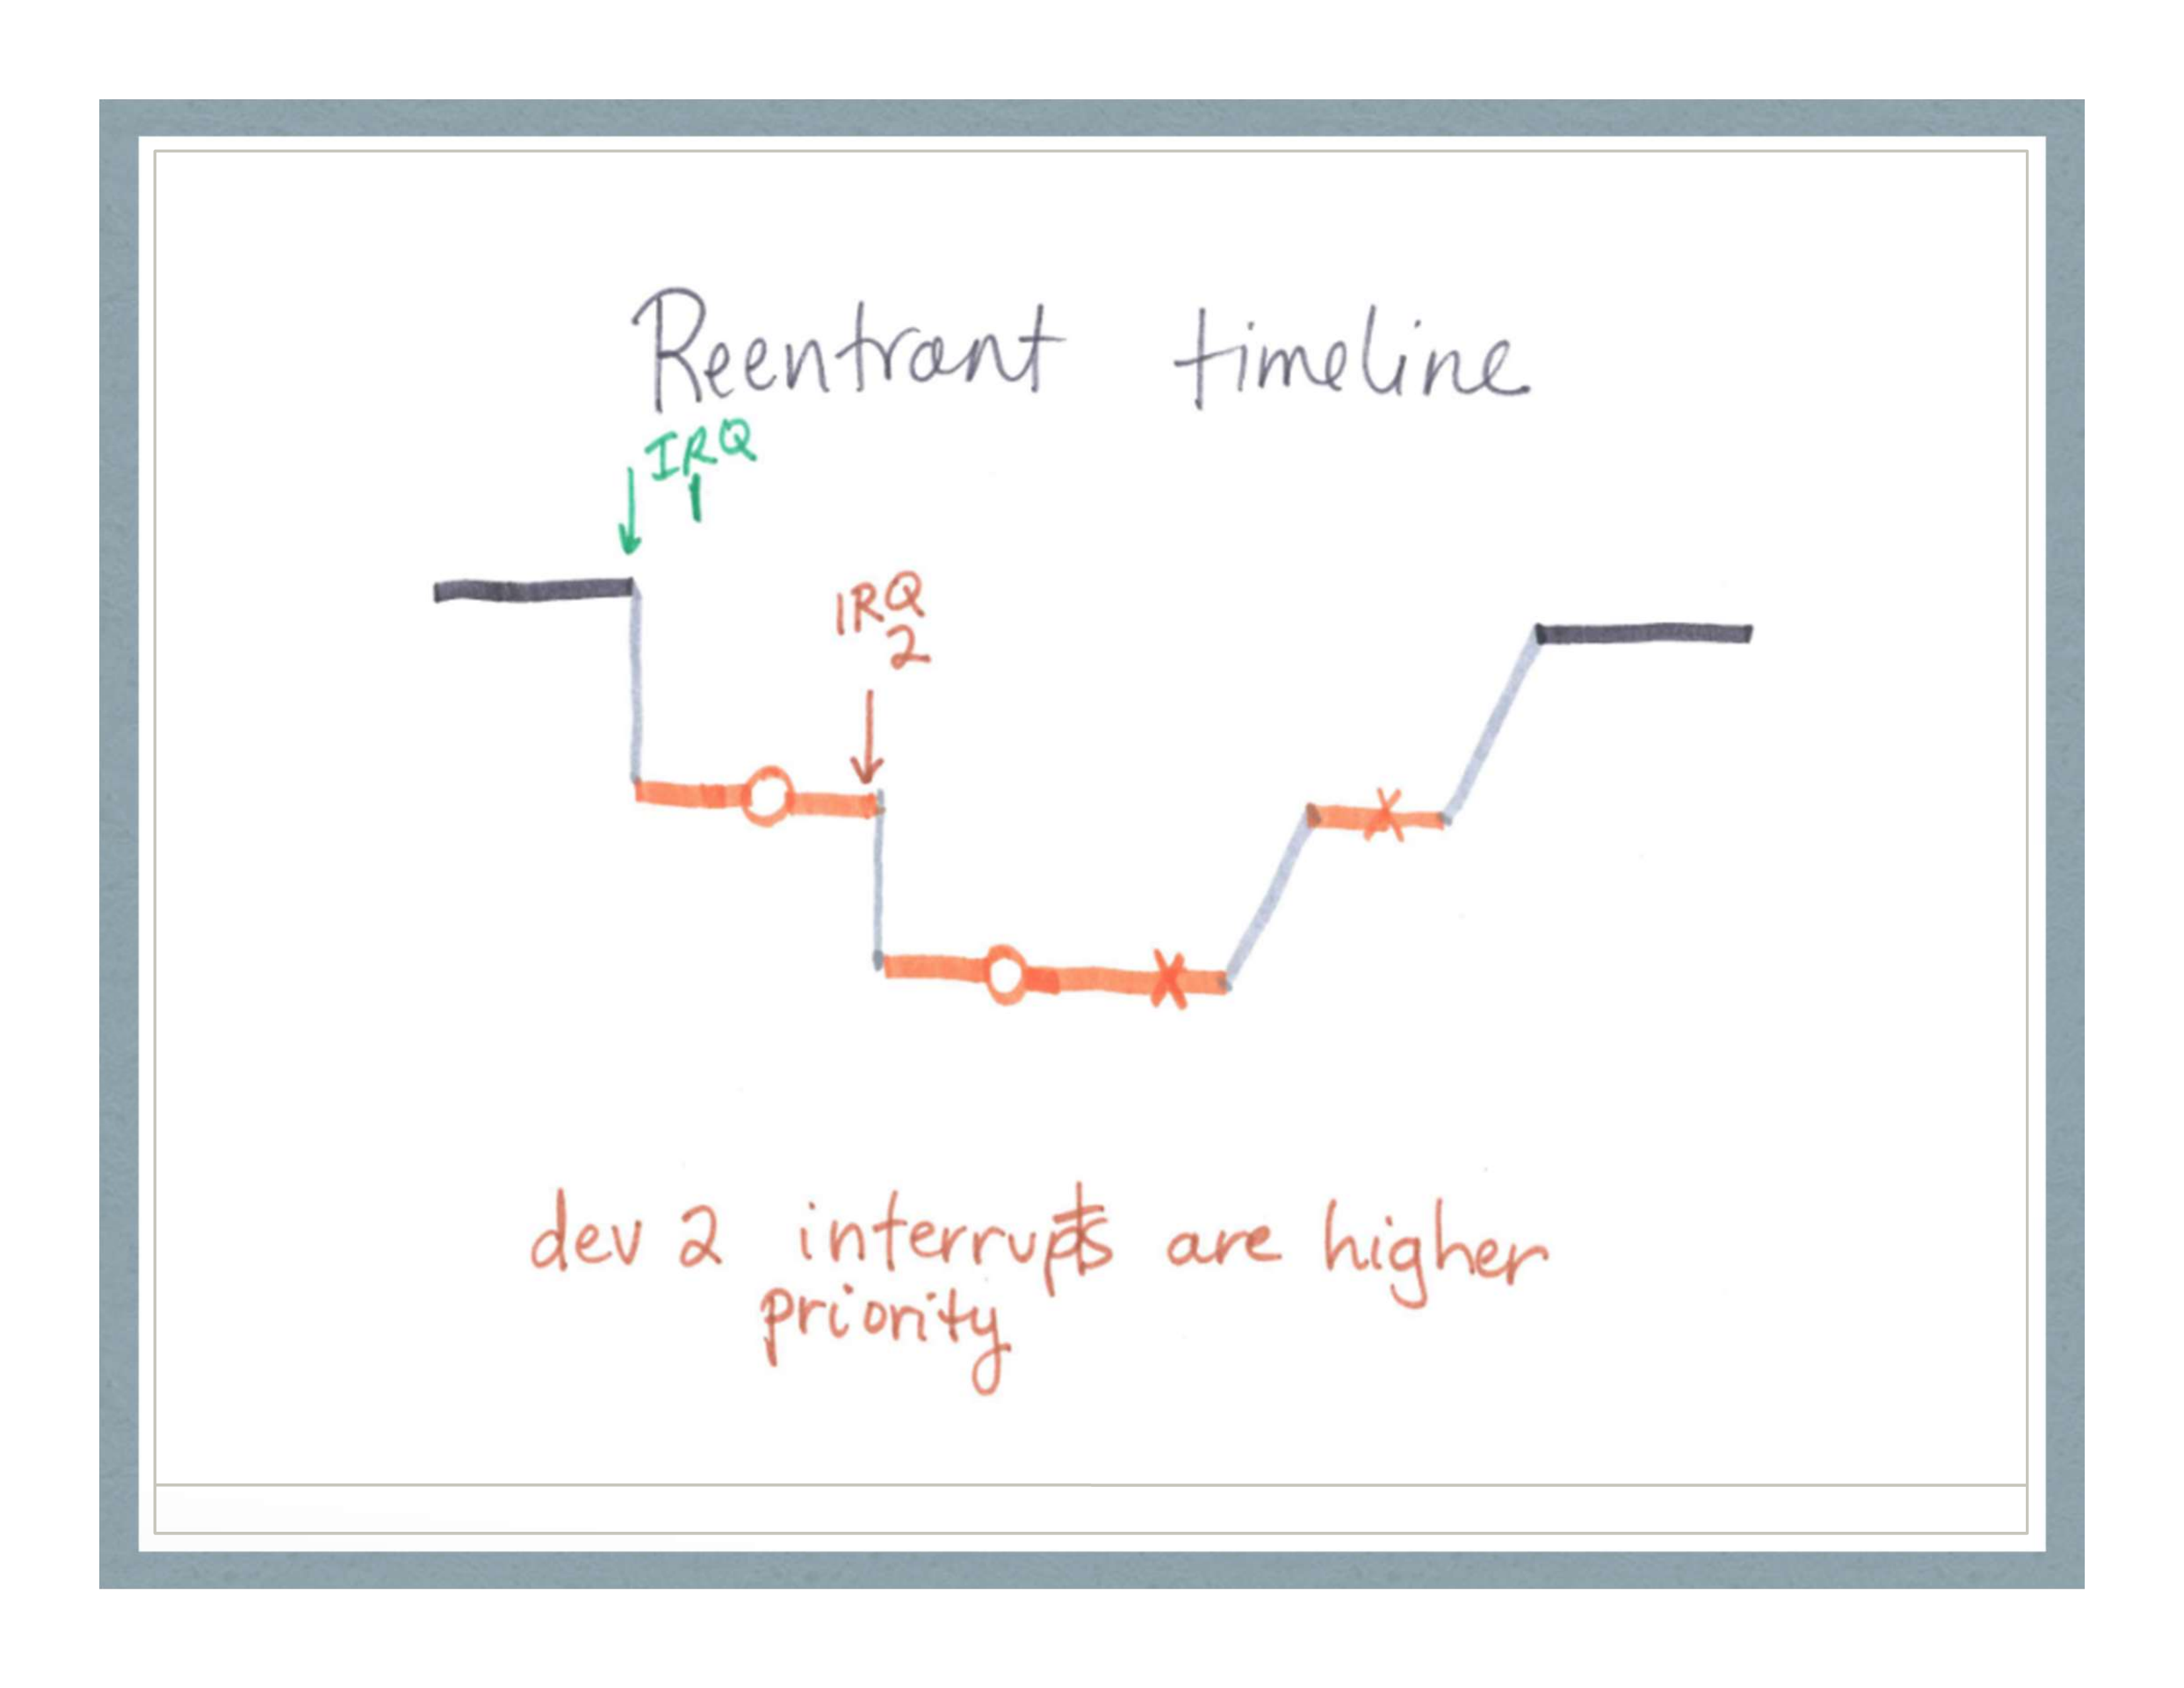 Reentrant timeline
IRQ
1
IRQ
2
dev 2 interrupts are higher
priority